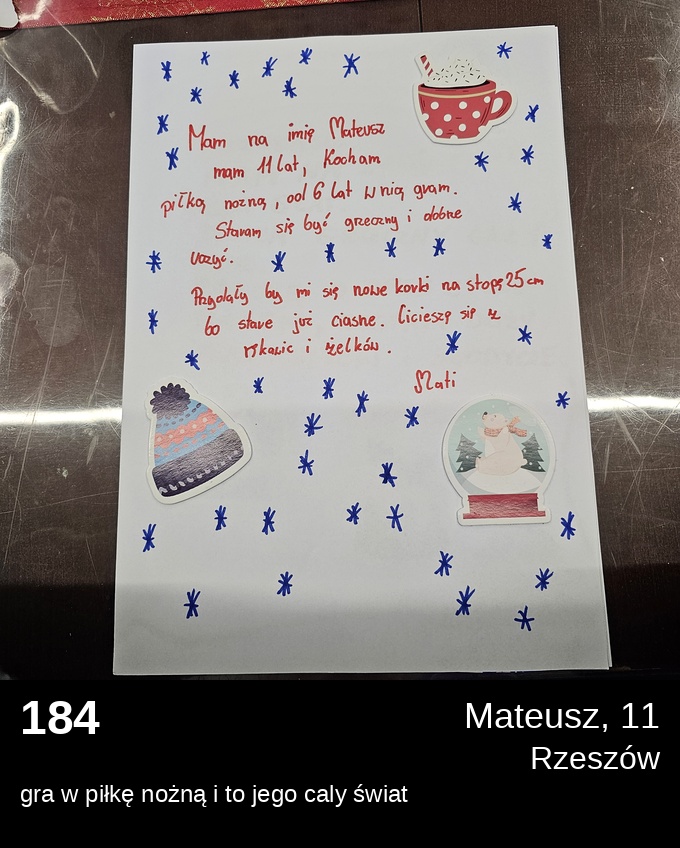 Mam na imię Mateusz
mam 11 lat, Kocham
piłką nożną, od 6 lat w nią gram.
Staram się być grzeczny i dobrze
uczyć.
Przydały by mi się nowe korki na stopę 25 cm
bo stare już ciasne. Cicieszę się z
i żelków.
Mati
184
Mateusz, 11
Rzeszów
gra w piłkę nożną i to jego caly świat